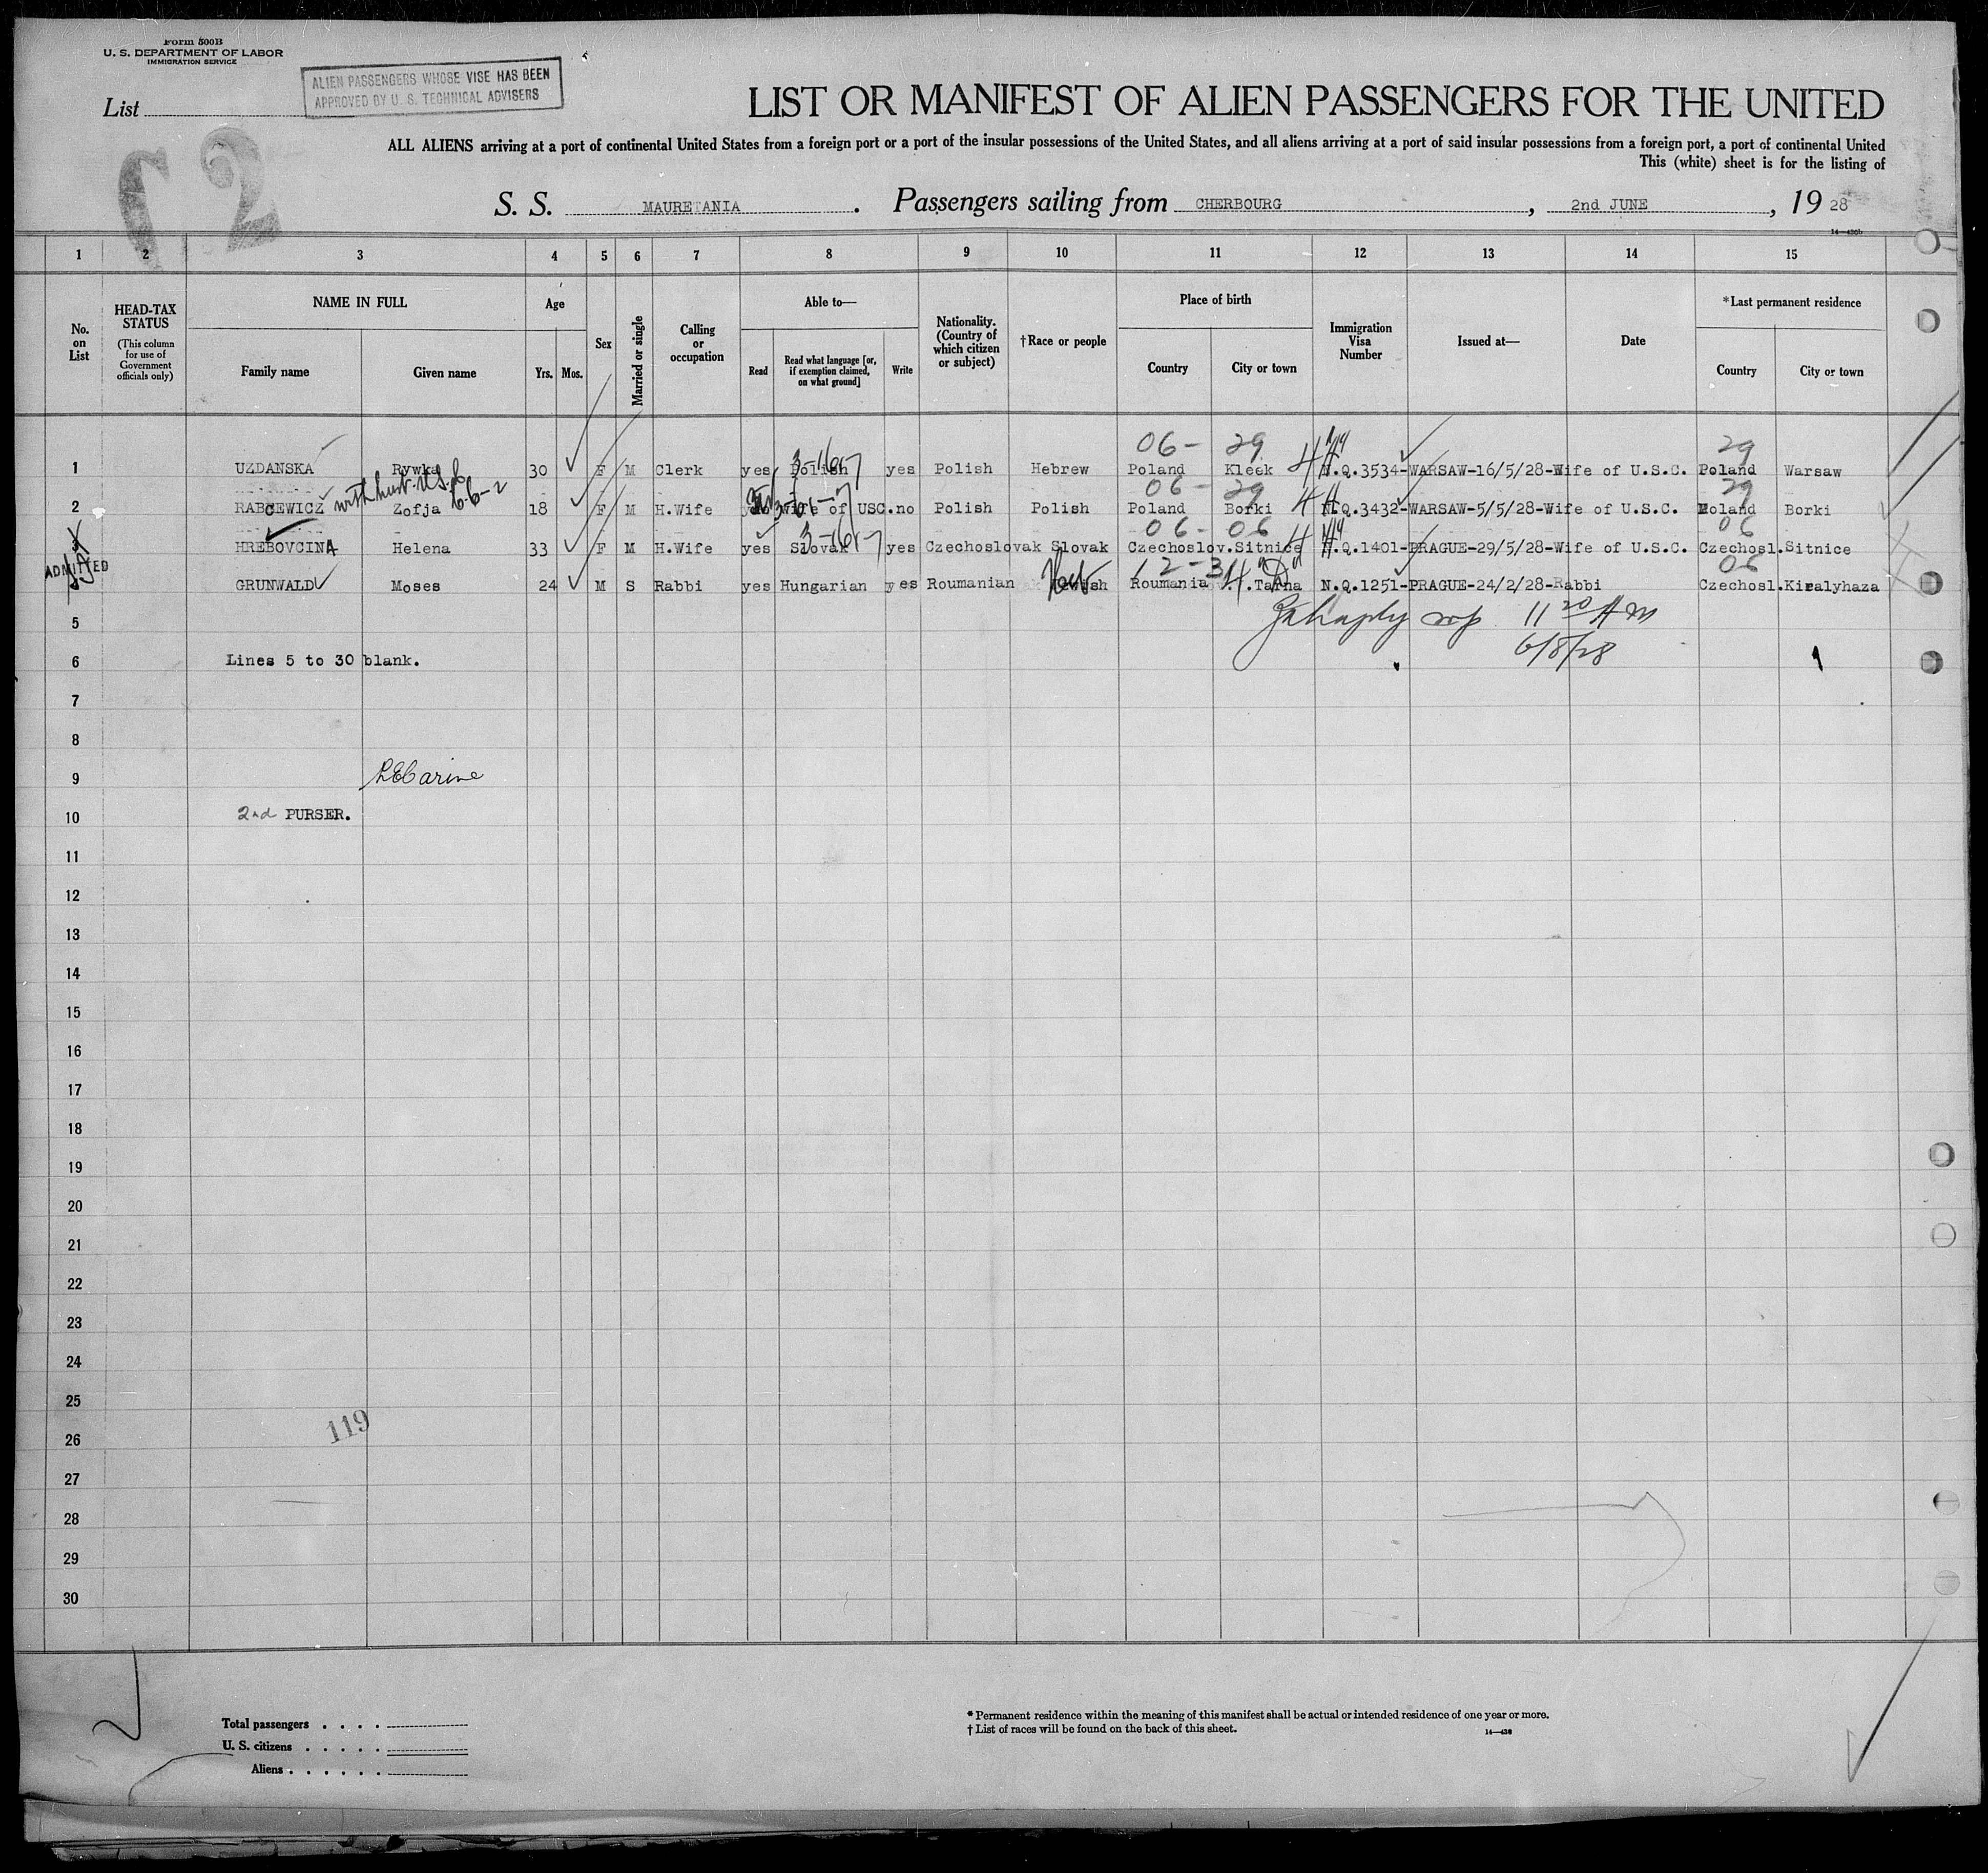 Form 500B
U. S. DEPARTMENT OF LABOR
IMMIGRATION SERVICE
ALIEN PASSENGERS WHOSE VISE HAS BEEN
APPROVED BY U. S. TECHNICAL ADVISERS
List
LIST OR MANIFEST OF ALIEN PASSENGERS FOR THE UNITED
ALL ALIENS arriving at a port of continental United States from a foreign port or a port of the insular possessions of the United States, and all aliens arriving at a port of said insular possessions from a foreign port, a port of continental United
This (white) sheet is for the listing of
2
S. S. MAURETANIA. Passengers sailing from CHERBOURG, 2nd JUNE, 1928
14—430b
1 2 3 4 5 6 7 8 9 10 11 12 13 14 15
No. on List
HEAD-TAX STATUS
(This column for use of Government officials only)
NAME IN FULL
Family name Given name
Age
Yrs. Mos.
Sex
Married or single
Calling or occupation
Able to—
Read
Read what language [or, if exemption claimed, on what ground]
Write
Nationality. (Country of which citizen or subject)
†Race or people
Place of birth
Country City or town
Immigration Visa Number
Issued at—
Date
*Last permanent residence
Country City or town
06- 29 29
1 UZDANSKA Rywka 30 F M Clerk yes Polish yes Polish Hebrew Poland Kleek N.Q.3534-WARSAW-16/5/28-Wife of U.S.C. Poland Warsaw
with husb. U.S.C. 6-2
06- 29 29
2 RABCEWICZ Zofja 18 F M H.Wife wife of USC. no Polish Polish Poland Borki N.Q.3432-WARSAW-5/5/28-Wife of U.S.C. Poland Borki
06- 06 06
3 HREBOVCINA Helena 33 F M H.Wife yes Slovak yes Czechoslovak Slovak Czechoslov. Sitnice N.Q.1401-PRAGUE-29/5/28-Wife of U.S.C. Czechosl. Sitnice
ADMITTED
06
GRUNWALD Moses 24 M S Rabbi yes Hungarian yes Roumanian Heb Roumania Tarna N.Q.1251-PRAGUE-24/2/28-Rabbi Czechosl. Kiralyhaza
5
11 20 AM
6/8/28
6 Lines 5 to 30 blank.
7
8
9
10 2nd PURSER.
11
12
13
14
15
16
17
18
19
20
21
22
23
24
25
119
26
27
28
29
30
Total passengers
U. S. citizens
Aliens
* Permanent residence within the meaning of this manifest shall be actual or intended residence of one year or more.
† List of races will be found on the back of this sheet.
14—430